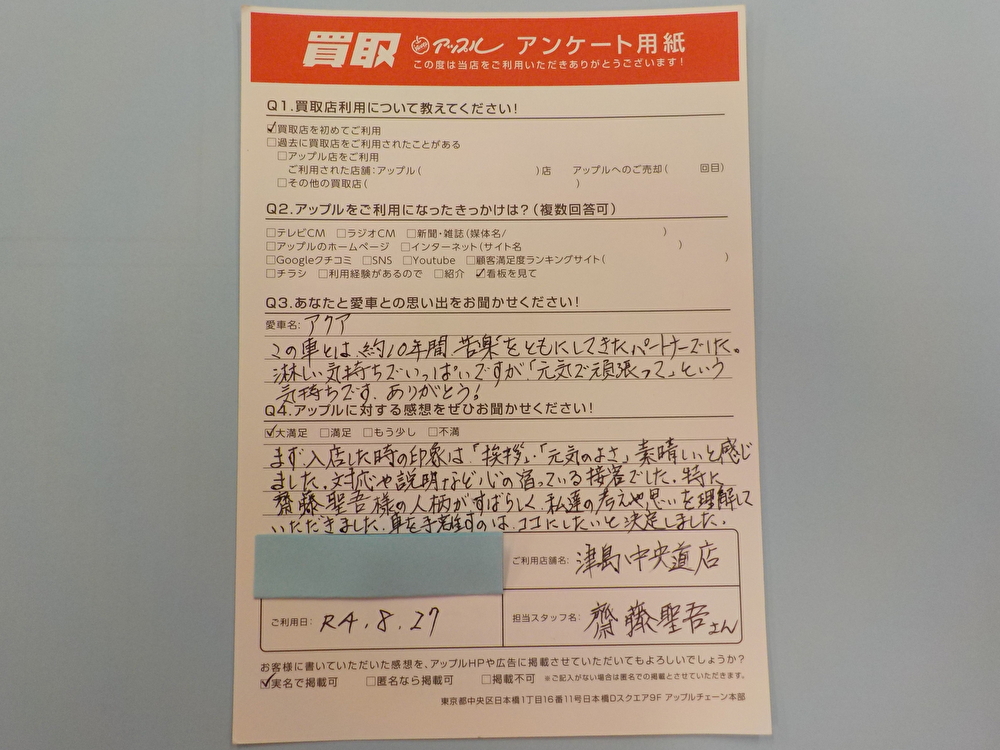 買取 アップル アンケート用紙
この度は当店をご利用いただきありがとうございます!
Q1.買取店利用について教えてください!
☑買取店を初めてご利用
□過去に買取店をご利用されたことがある
□アップル店をご利用
ご利用された店舗:アップル( )店 アップルへのご売却( 回目)
□その他の買取店( )
Q2.アップルをご利用になったきっかけは?(複数回答可)
□テレビCM □ラジオCM □新聞・雑誌(媒体名/ )
□アップルのホームページ □インターネット(サイト名 )
□Googleクチコミ □SNS □Youtube □顧客満足度ランキングサイト( )
□チラシ □利用経験があるので □紹介 ☑看板を見て
Q3.あなたと愛車との思い出をお聞かせください!
愛車名:アクア
この車とは、約10年間、苦楽をともにしてきたパートナーでした。
淋しい気持ちでいっぱいですが「元気で頑張って」という
気持ちです、ありがとう!
Q4.アップルに対する感想をぜひお聞かせください!
☑大満足 □満足 □もう少し □不満
まず、入店した時の印象は「挨拶」・「元気のよさ」素晴しいと感じ
ました。対応や説明など心の宿っている接客でした。特に
齋藤聖吾様の人柄がすばらしく、私達の考えや思いを理解して
いただきました、車を手離すのは、ココにしたいと決定しました。
ご利用店舗名: 津島、中央道店
ご利用日: R4.8.27
担当スタッフ名: 齋藤聖吾さん
お客様に書いていただいた感想を、アップルHPや広告に掲載させていただいてもよろしいでしょうか?
☑実名で掲載可 □匿名なら掲載可 □掲載不可 ※ご記入がない場合は匿名での掲載とさせていただきます。
東京都中央区日本橋1丁目16番11号日本橋Dスクエア9F アップルチェーン本部